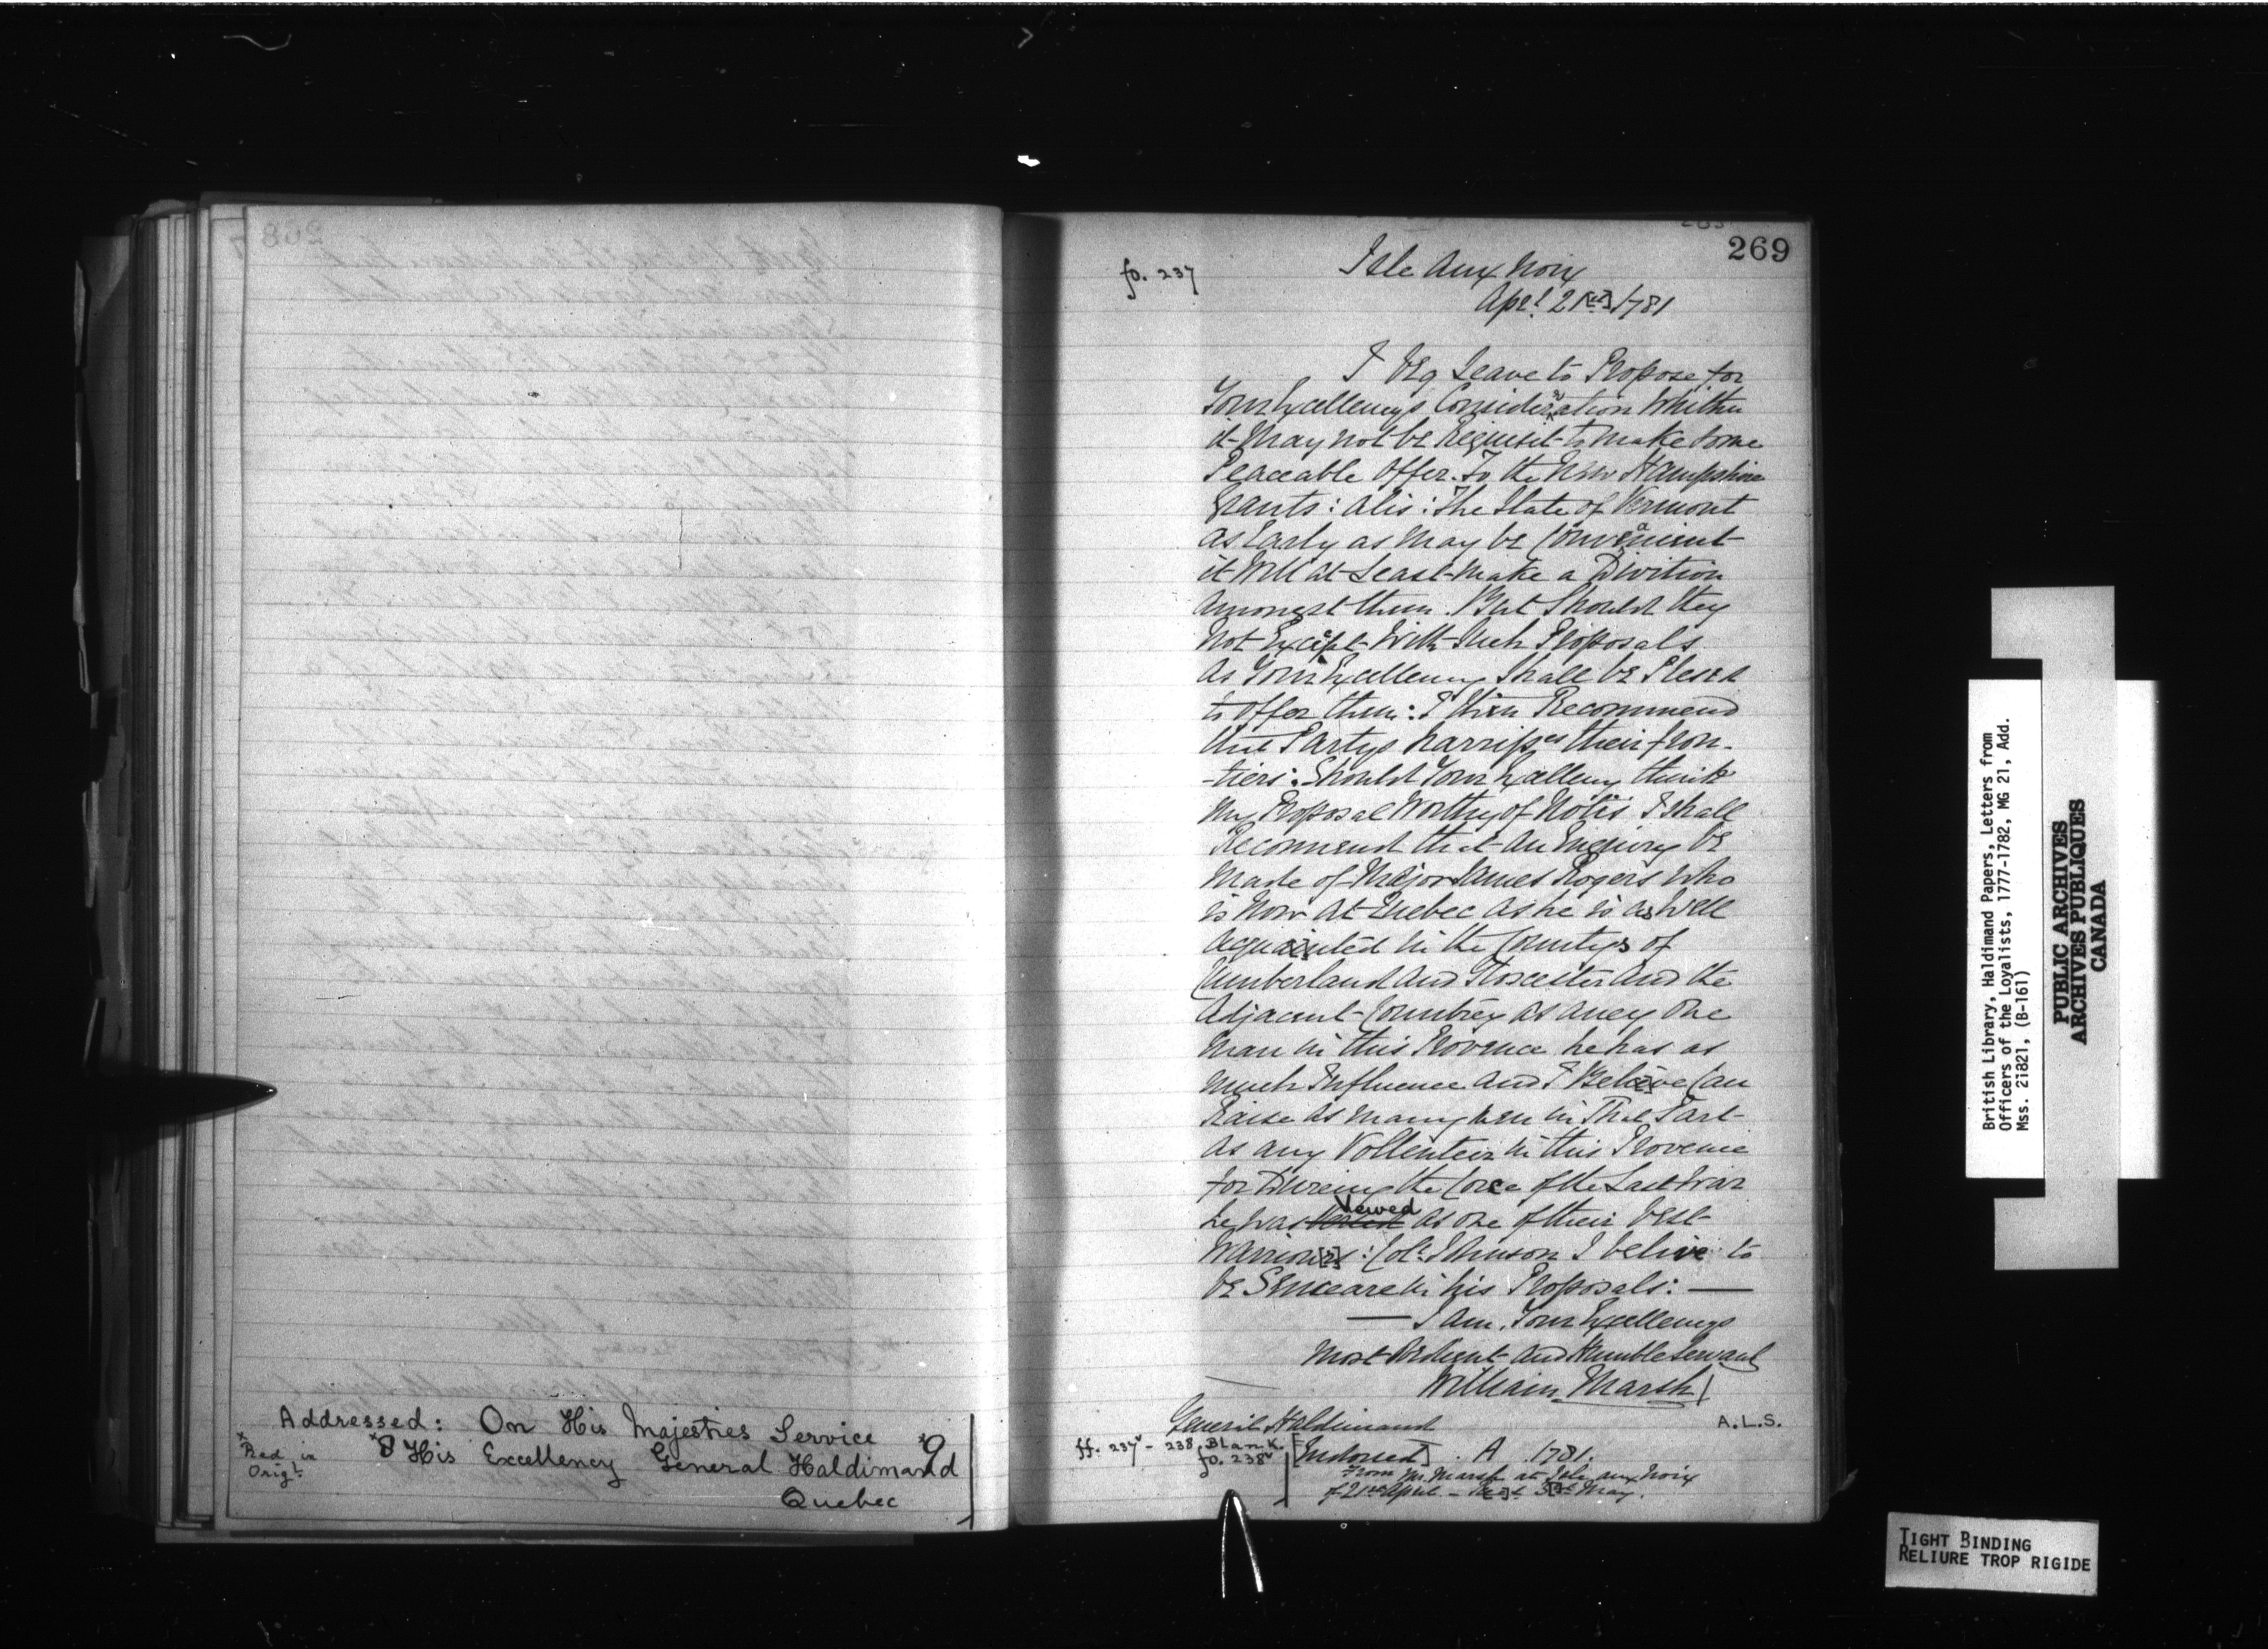 269
fo. 237
Isle Aux Noix
Aprl 21[st] 1781
I Beg Leave to Propose for
Your Excellencys Consideration Whither
it May not be Requisit to Make Some
Peaceable Offer To the New Hampshire
Grants : Alis : The State of Vermont
as Early as May be Convanient
it Will at Least Make a Divition
Amongst them. But Should they
Not Except With Such Proposals
As Your Excellency Shall be Plesed
to Offer them : I then Recommend
that Partys harriss their fron-
-tiers : Should Your Excellency think
My Proposal Worthy of Notis I Shall
Recommend that an Enquiry be
Made of Major James Rogers who
is Now at Quebec as he is as Well
Acquainted in the Countys of
Cumberland and Glocester and the
Adjacent Country as aney One
Man in this Provence he has as
Much Influence and I Believe Can
Raise as many Men in That Part
as any Vollenteir in this Provence
for Dureing the Corce of the Last War
he was Vewed as One of their best
Warriou[r]s : Colo. Johnson I belive to
be Senceare in his Proposals : —
— I am, Your Excellencys
Most Obdient and Humble Servant
William Marsh
A.L.S.
General Haldimand
ff. 237v - 238 Blank.
fo. 238v
[Endorsed] . A 1781.
From Mr. Marsh at Isle aux Noix
of 21st April - Rec[d] 3[d] May.
Addressed: On His Majesties Service
His Excellency General Haldimand
Quebec
x Red in
Origl.
British Library, Haldimand Papers, Letters from
Officers of the Loyalists, 1777-1782, MG 21, Add.
Mss. 21821, (B-161)
PUBLIC ARCHIVES
ARCHIVES PUBLIQUES
CANADA
TIGHT BINDING
RELIURE TROP RIGIDE